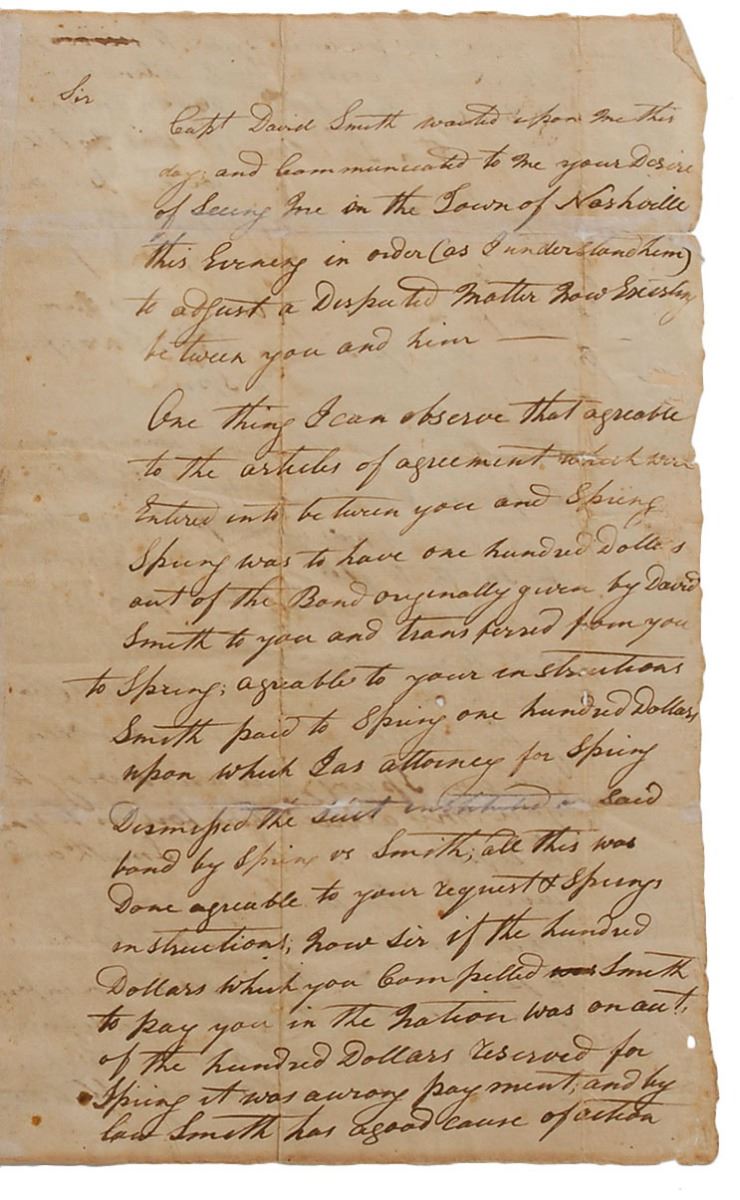 Sir
Capt David Smith waited upon me this
day; and Communicated to me your Desire
of Seeing me in the Town of Nashville
this Evening in order (as I understand him)
to adjust a Disputed Matter Now Existing
between you and him —
One thing I can observe that agreable
to the articles of agreement which were
Entered into between you and Spring
Spring was to have one hundred Dollers
out of the Bond originally given by David
Smith to you and transferred from you
to Spring; agreable to your instructions
Smith paid to Spring one hundred Dollars
upon which I as attorney for Spring
Dismissed the suit instituted on said
bond by Spring vs Smith; all this was
Done agreable to your request & Springs
instructions; Now Sir if the hundred
Dollars which you Compelled Smith
to pay you in the Nation was on aut.
of the hundred Dollars reserved for
Spring it was a wrong payment, and by
law Smith has a good cause of action